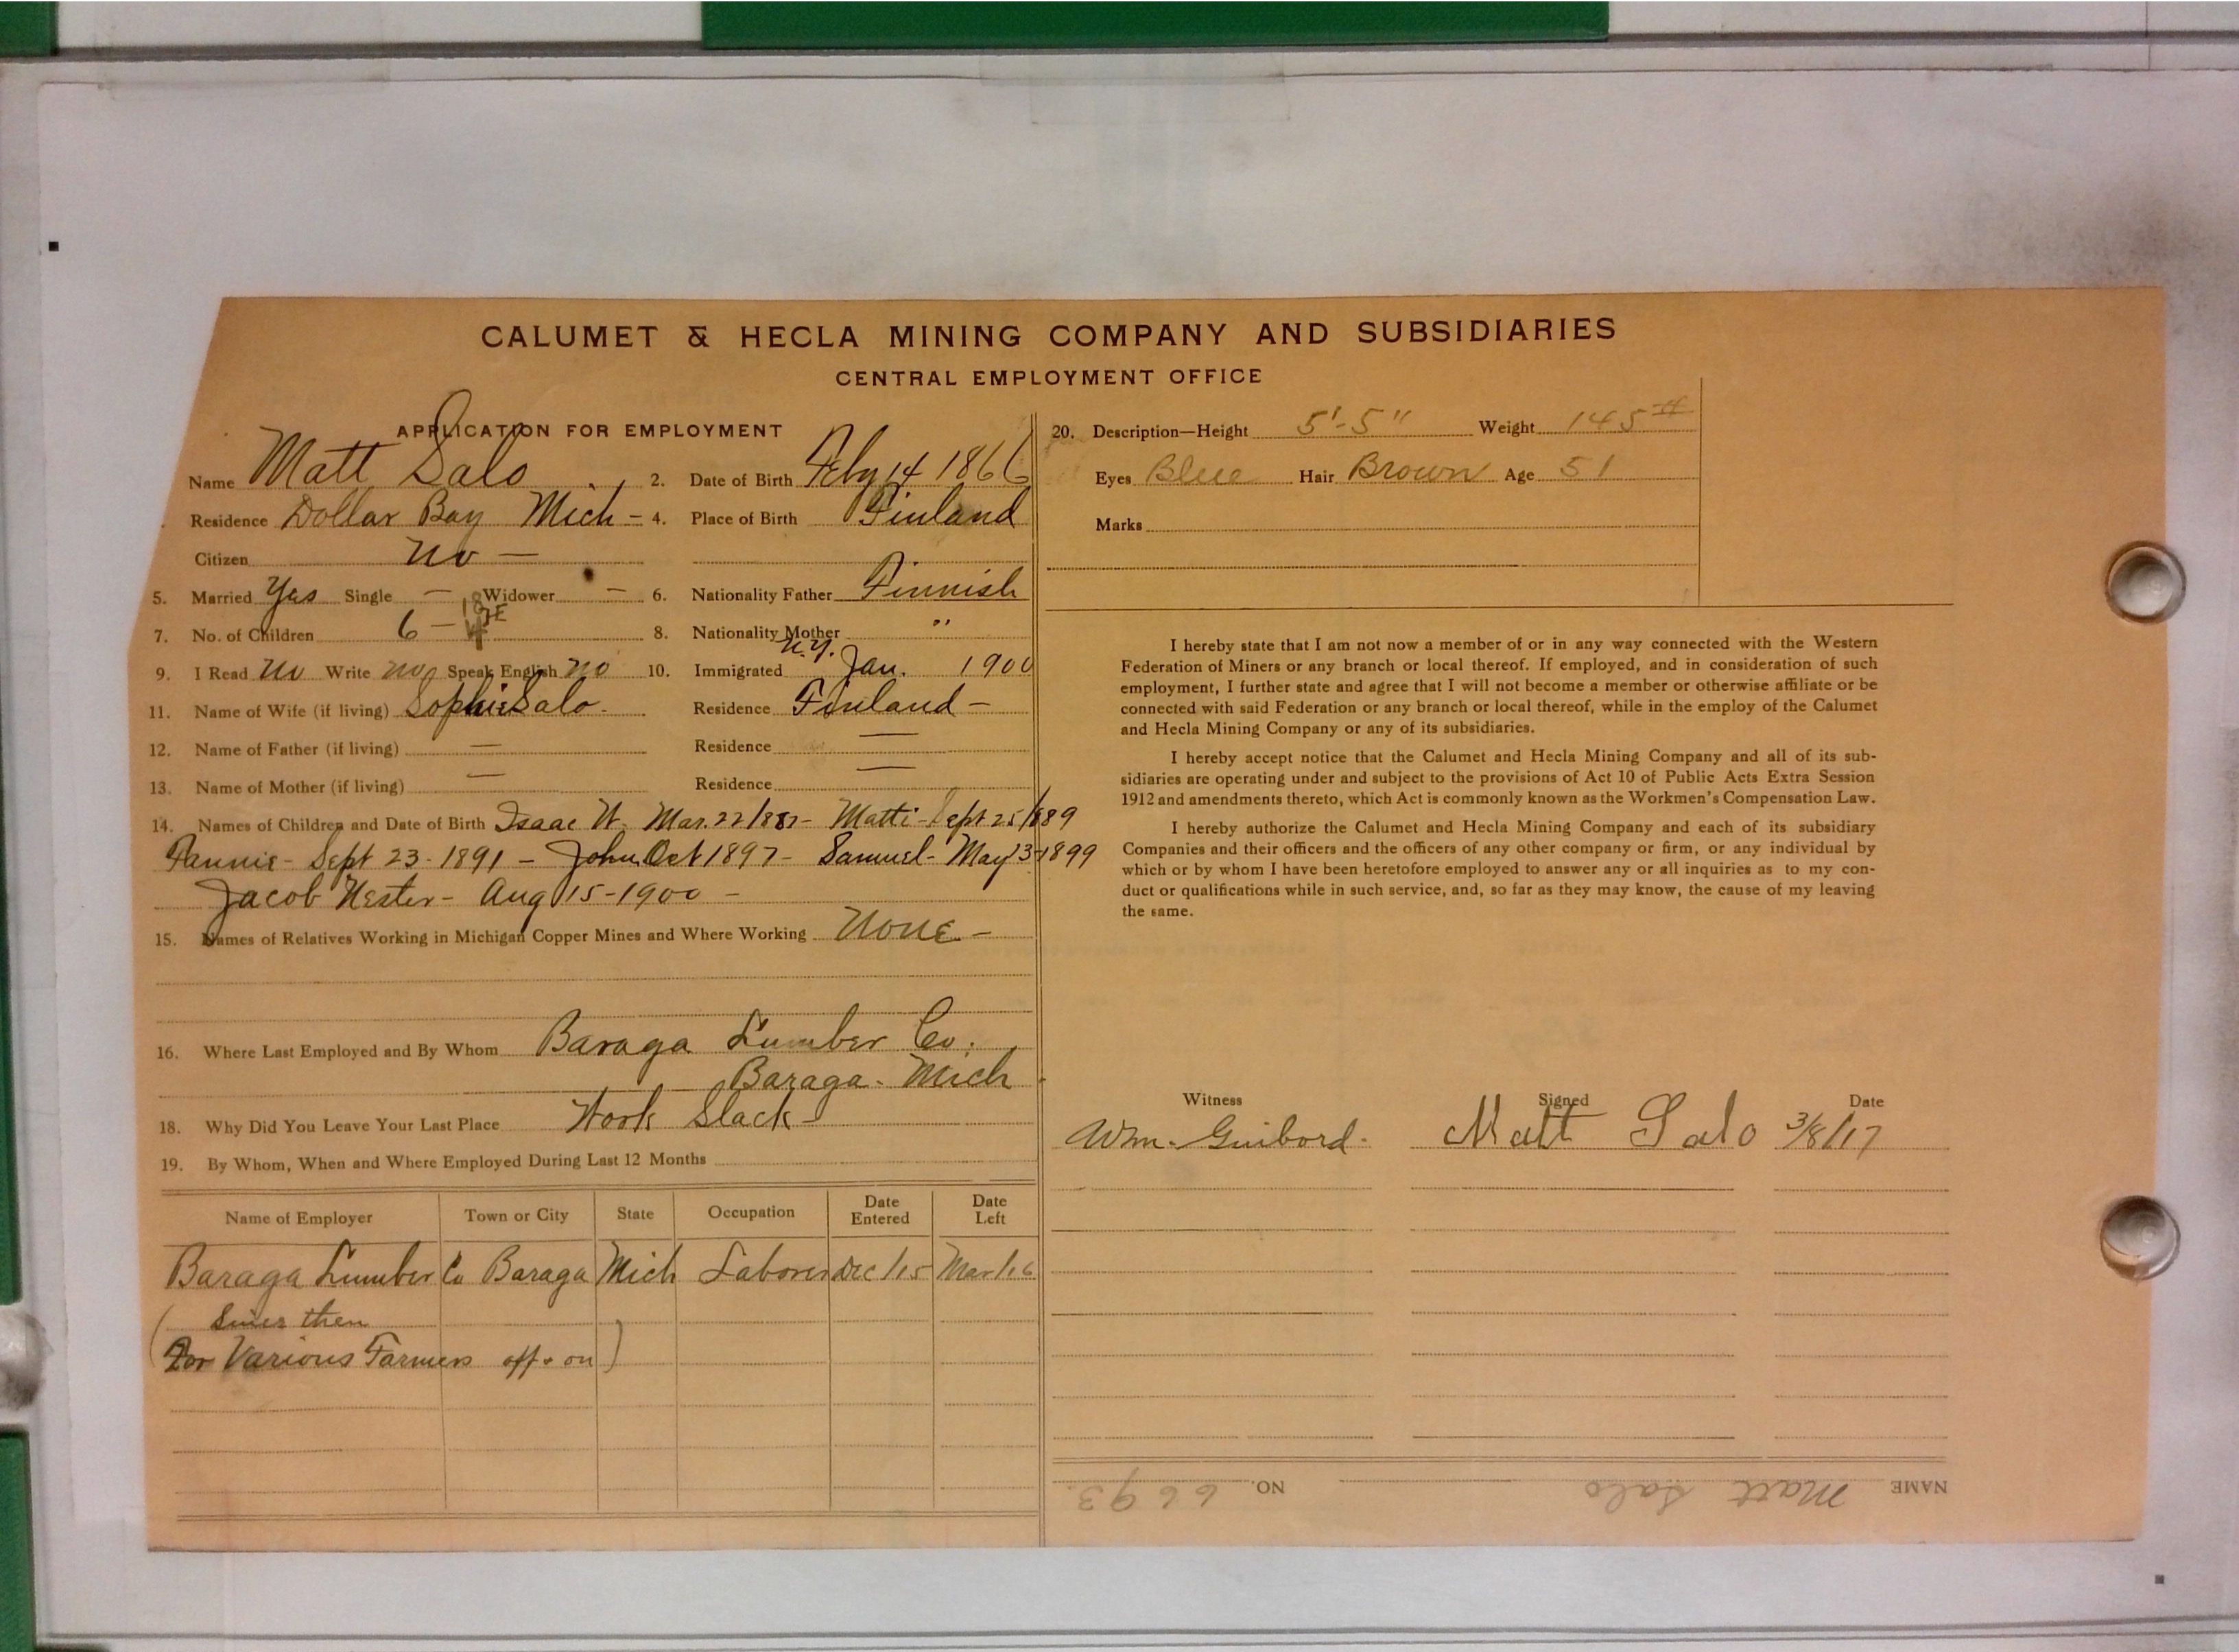 CALUMET & HECLA MINING COMPANY AND SUBSIDIARIES
CENTRAL EMPLOYMENT OFFICE
APPLICATION FOR EMPLOYMENT
Name Matt Salo 2. Date of Birth Feby 14 1866
Residence Dollar Bay Mich - 4. Place of Birth Finland
Citizen no —
5. Married Yes Single — Widower — 6. Nationality Father Finnish
7. No. of Children 6 - 8. Nationality Mother "
9. I Read no Write no Speak English no 10. Immigrated N.Y. Jan. 1900
11. Name of Wife (if living) Sophie Salo. Residence Finland -
12. Name of Father (if living) — Residence —
13. Name of Mother (if living) — Residence —
14. Names of Children and Date of Birth Isaac W. Mar. 22/887 - Matti - Sept 25/889
Fannie - Sept 23 - 1891 - John Oct 1897 - Samuel - May 3 - 1899
Jacob Nester - Aug 15 - 1900 -
15. Names of Relatives Working in Michigan Copper Mines and Where Working None -
16. Where Last Employed and By Whom Baraga Lumber Co.
Baraga - Mich
18. Why Did You Leave Your Last Place Work Slack -
19. By Whom, When and Where Employed During Last 12 Months
Name of Employer Town or City State Occupation Date Entered Date Left
Baraga Lumber Co Baraga Mich Laborer Dec/15 Mar/16
( Since then
For Various Farmers off & on )
20. Description—Height 5'-5" Weight 145#
Eyes Blue Hair Brown Age 51
Marks
I hereby state that I am not now a member of or in any way connected with the Western
Federation of Miners or any branch or local thereof. If employed, and in consideration of such
employment, I further state and agree that I will not become a member or otherwise affiliate or be
connected with said Federation or any branch or local thereof, while in the employ of the Calumet
and Hecla Mining Company or any of its subsidiaries.
I hereby accept notice that the Calumet and Hecla Mining Company and all of its sub-
sidiaries are operating under and subject to the provisions of Act 10 of Public Acts Extra Session
1912 and amendments thereto, which Act is commonly known as the Workmen's Compensation Law.
I hereby authorize the Calumet and Hecla Mining Company and each of its subsidiary
Companies and their officers and the officers of any other company or firm, or any individual by
which or by whom I have been heretofore employed to answer any or all inquiries as to my con-
duct or qualifications while in such service, and, so far as they may know, the cause of my leaving
the same.
Witness Signed Date
Wm. Guibord. Matt Salo 3/8/17
NAME Matt Salo NO. 6693